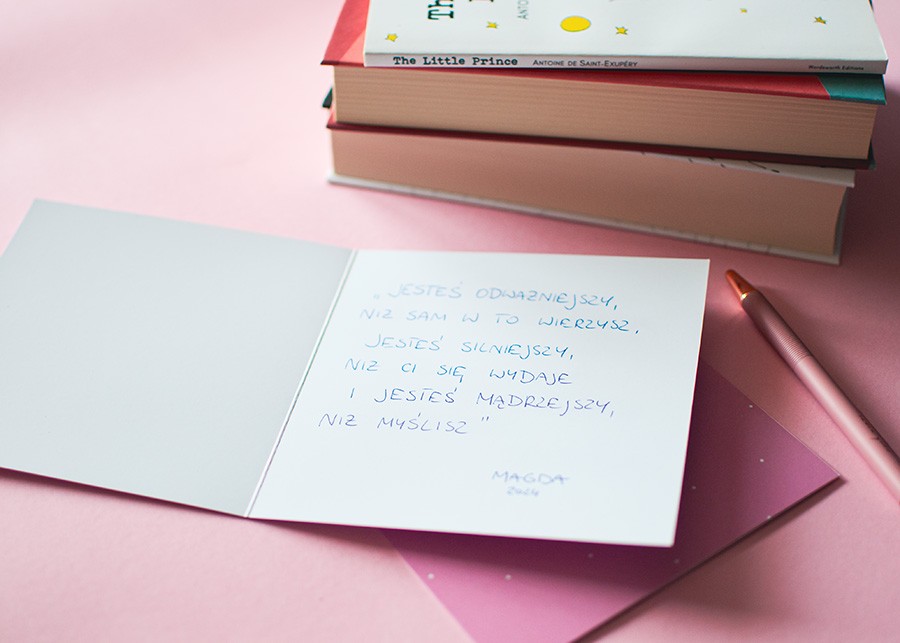 Th
ANTO
The Little Prince ANTOINE DE SAINT-EXUPÉRY Wordsworth Editions
„JESTEŚ ODWAŻNIEJSZY,
NIŻ SAM W TO WIERZYSZ,
JESTEŚ SILNIEJSZY,
NIŻ CI SIĘ WYDAJE
I JESTEŚ MĄDRZEJSZY,
NIŻ MYŚLISZ"
MAGDA
2024